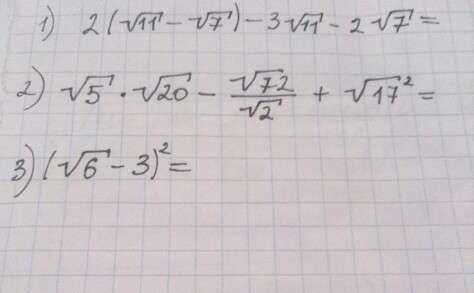 1) 2(√11 - √7) - 3√11 - 2√7 =
2) √5 · √20 - √72/√2 + √17² =
3) (√6 - 3)² =